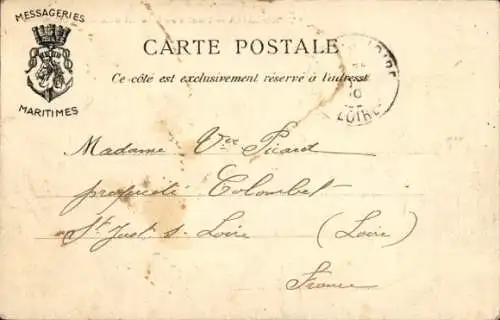 MESSAGERIES
MARITIMES
CARTE POSTALE
Ce côté est exclusivement réservé à l'adresse
LOIRE
Madame Vve Picard
propriété Colombet
St Just s. Loire (Loire)
France